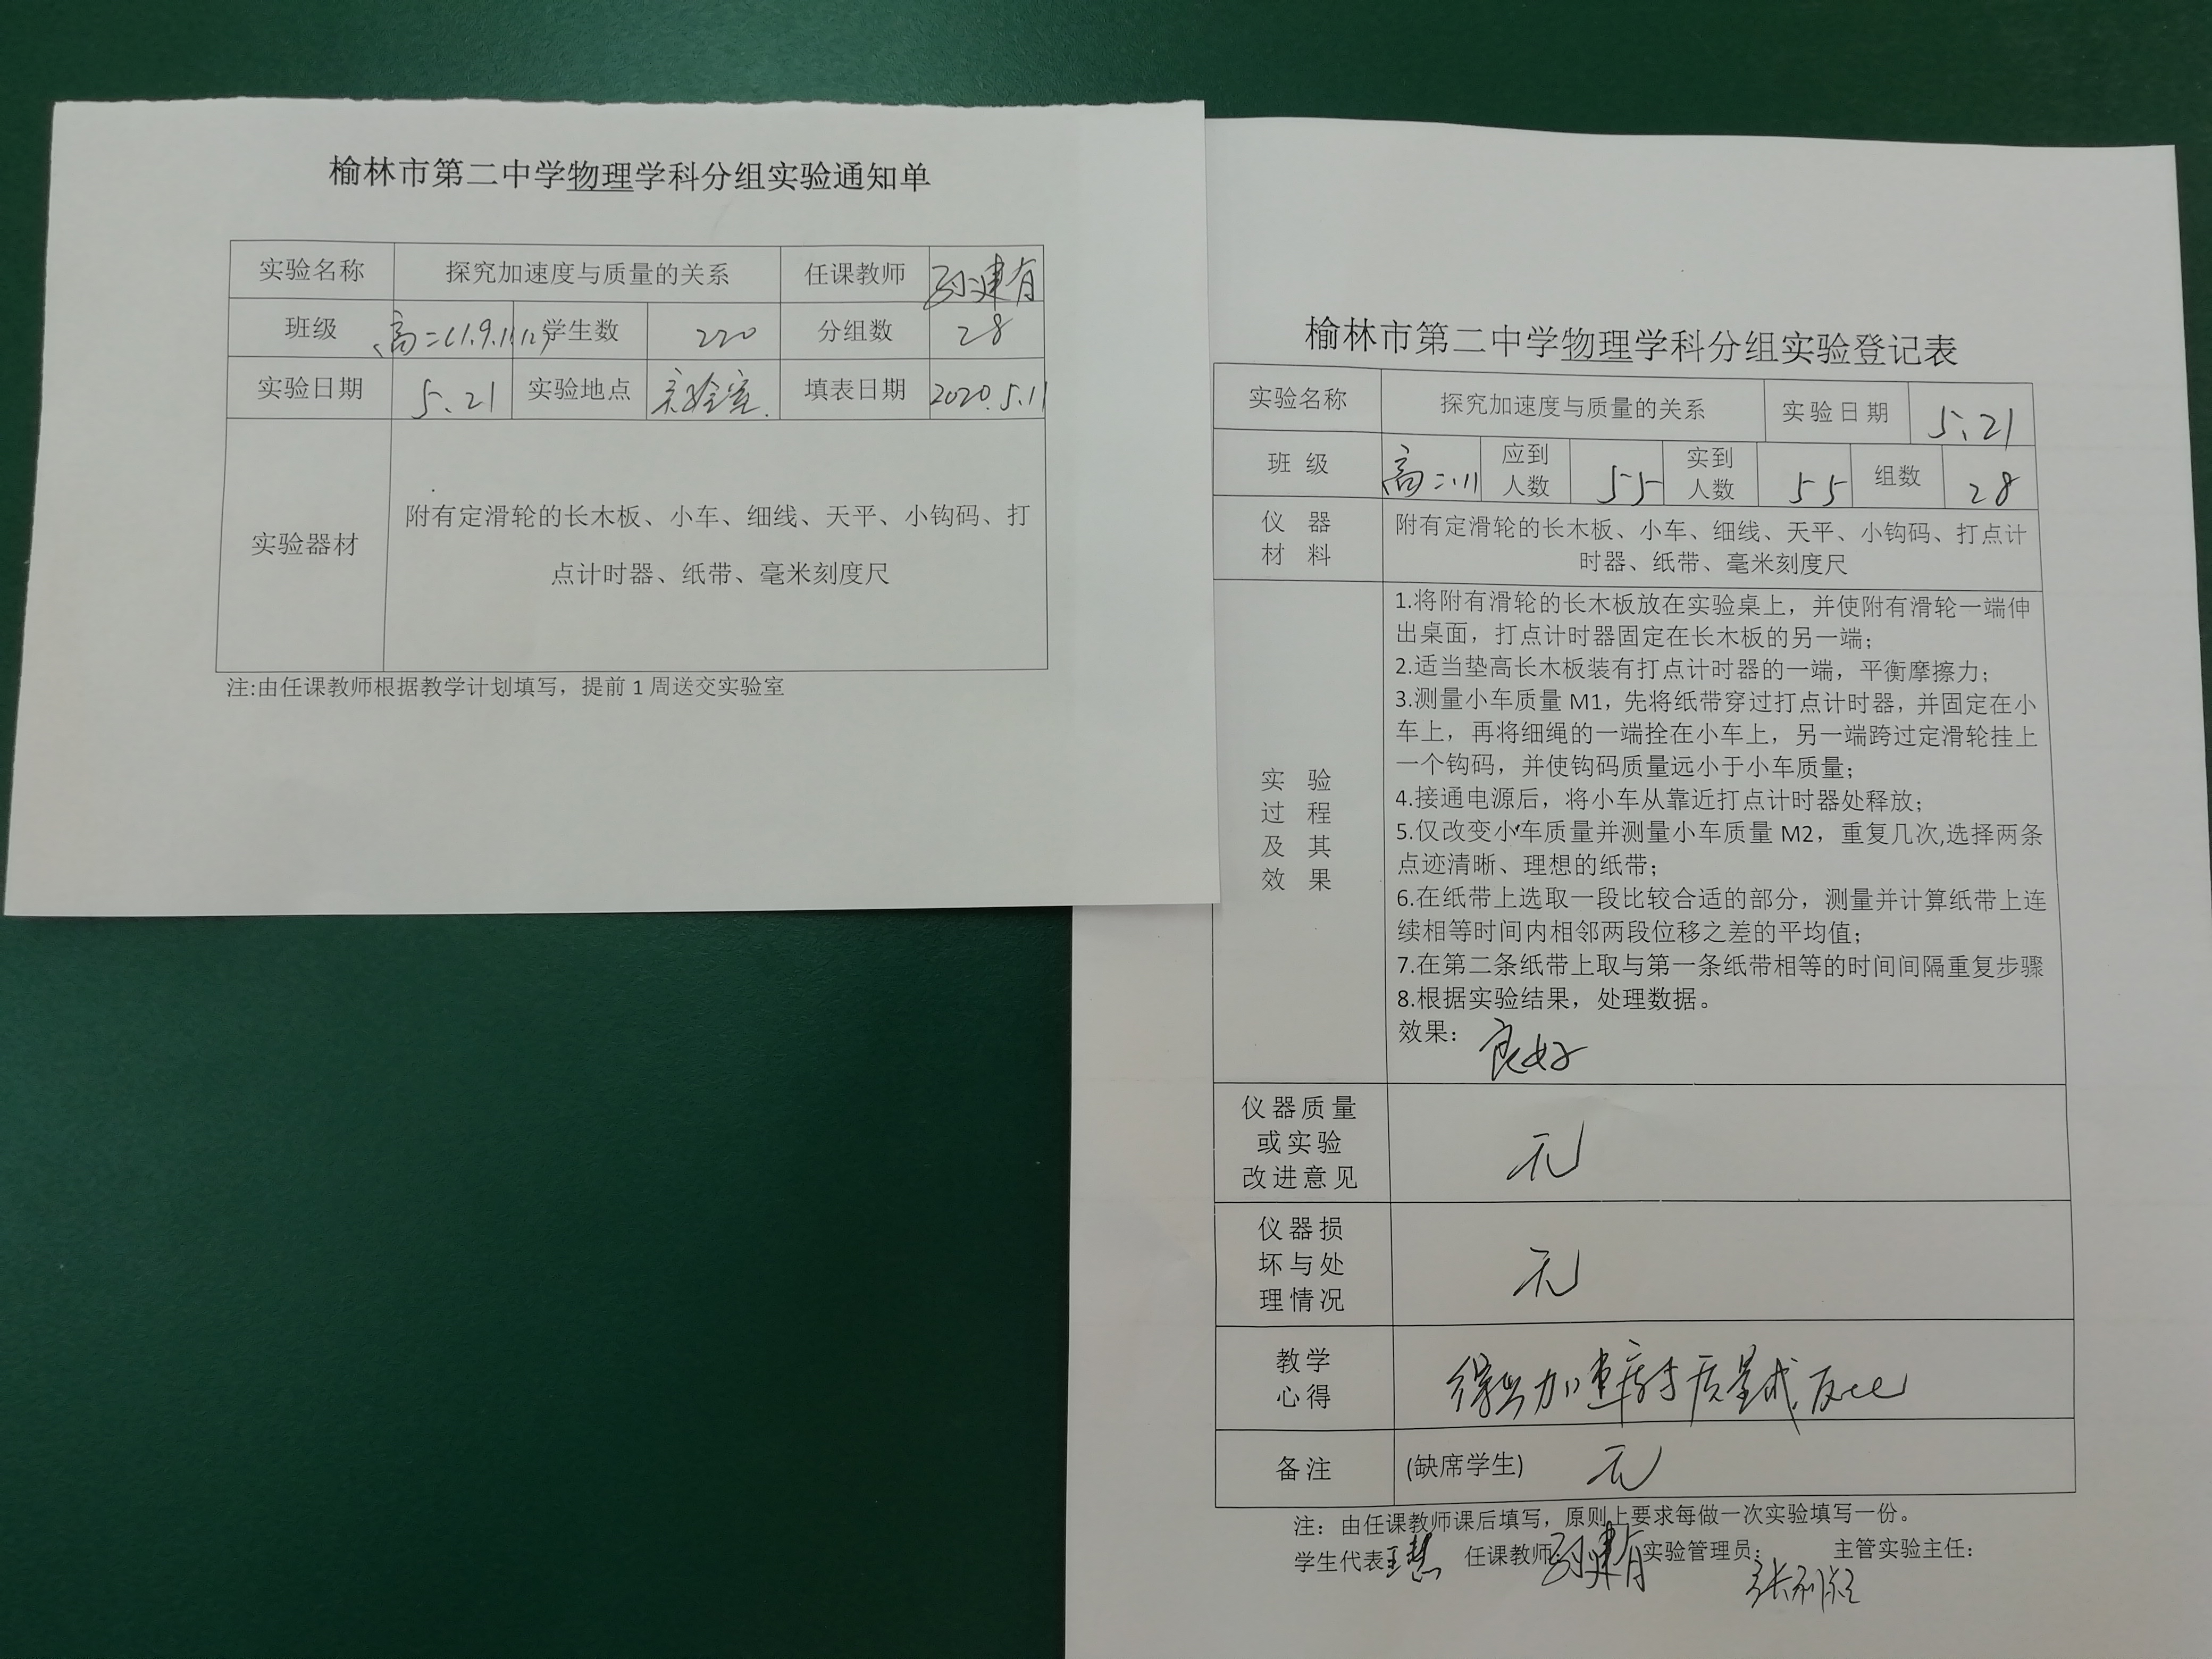 榆林市第二中学物理学科分组实验通知单
实验名称 探究加速度与质量的关系 任课教师 孙建有
班级 高二(1.9.11.12) 学生数 220 分组数 28
实验日期 5.21 实验地点 实验室. 填表日期 2020.5.11
实验器材
附有定滑轮的长木板、小车、细线、天平、小钩码、打
点计时器、纸带、毫米刻度尺
注:由任课教师根据教学计划填写，提前1周送交实验室
榆林市第二中学物理学科分组实验登记表
实验名称 探究加速度与质量的关系 实验日期 5.21
班级 高二.11 应到人数 55 实到人数 55 组数 28
仪器材料
附有定滑轮的长木板、小车、细线、天平、小钩码、打点计
时器、纸带、毫米刻度尺
实验过程及其效果
1.将附有滑轮的长木板放在实验桌上，并使附有滑轮一端伸
出桌面，打点计时器固定在长木板的另一端；
2.适当垫高长木板装有打点计时器的一端，平衡摩擦力；
3.测量小车质量M1，先将纸带穿过打点计时器，并固定在小
车上，再将细绳的一端拴在小车上，另一端跨过定滑轮挂上
一个钩码，并使钩码质量远小于小车质量；
4.接通电源后，将小车从靠近打点计时器处释放；
5.仅改变小车质量并测量小车质量M2，重复几次,选择两条
点迹清晰、理想的纸带；
6.在纸带上选取一段比较合适的部分，测量并计算纸带上连
续相等时间内相邻两段位移之差的平均值；
7.在第二条纸带上取与第一条纸带相等的时间间隔重复步骤
8.根据实验结果，处理数据。
效果：良好
仪器质量
或实验
改进意见
无
仪器损
坏与处
理情况
无
教学
心得
得出加速度与质量成反比
备注 (缺席学生) 无
注：由任课教师课后填写，原则上要求每做一次实验填写一份。
学生代表 王慧 任课教师: 孙建有 实验管理员: 主管实验主任: